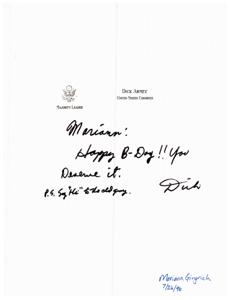 Dick Armey
United States Congress
Majority Leader
Mariann:
Happy B-Day!! You
Deserve it.
Dick
P.S. Say "Hi" to the old guy.
Mariann Gingrich